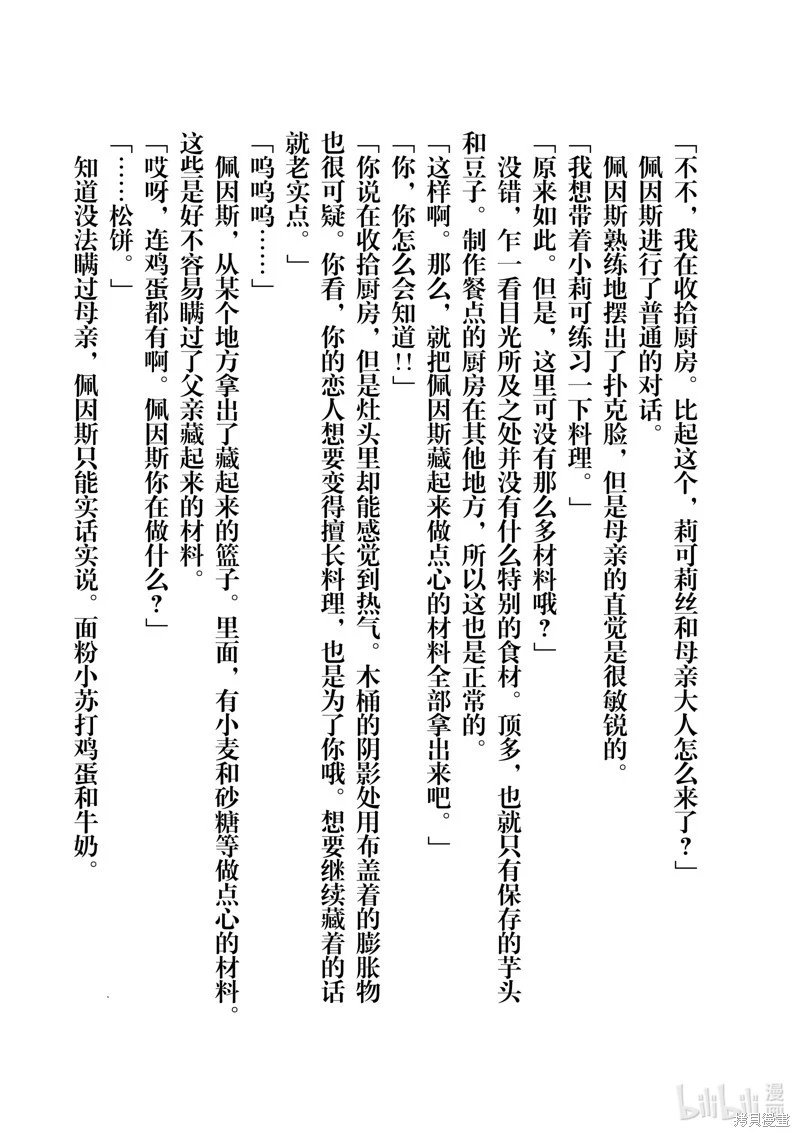 「不不，我在收拾厨房。比起这个，莉可莉丝和母亲大人怎么来了？」
佩因斯进行了普通的对话。
佩因斯熟练地摆出了扑克脸，但是母亲的直觉是很敏锐的。
「我想带着小莉可练习一下料理。」
「原来如此。但是，这里可没有那么多材料哦？」
没错，乍一看目光所及之处并没有什么特别的食材。顶多，也就只有保存的芋头
和豆子。制作餐点的厨房在其他地方，所以这也是正常的。
「这样啊。那么，就把佩因斯藏起来做点心的材料全部拿出来吧。」
「你，你怎么会知道!!」
「你说在收拾厨房，但是灶头里却能感觉到热气。木桶的阴影处用布盖着的膨胀物
也很可疑。你看，你的恋人想要变得擅长料理，也是为了你哦。想要继续藏着的话
就老实点。」
「呜呜呜……」
佩因斯，从某个地方拿出了藏起来的篮子。里面，有小麦和砂糖等做点心的材料。
这些是好不容易瞒过了父亲藏起来的材料。
「哎呀，连鸡蛋都有啊。佩因斯你在做什么？」
「……松饼。」
知道没法瞒过母亲，佩因斯只能实话实说。面粉小苏打鸡蛋和牛奶。
bilibili 漫画
拷贝漫畫